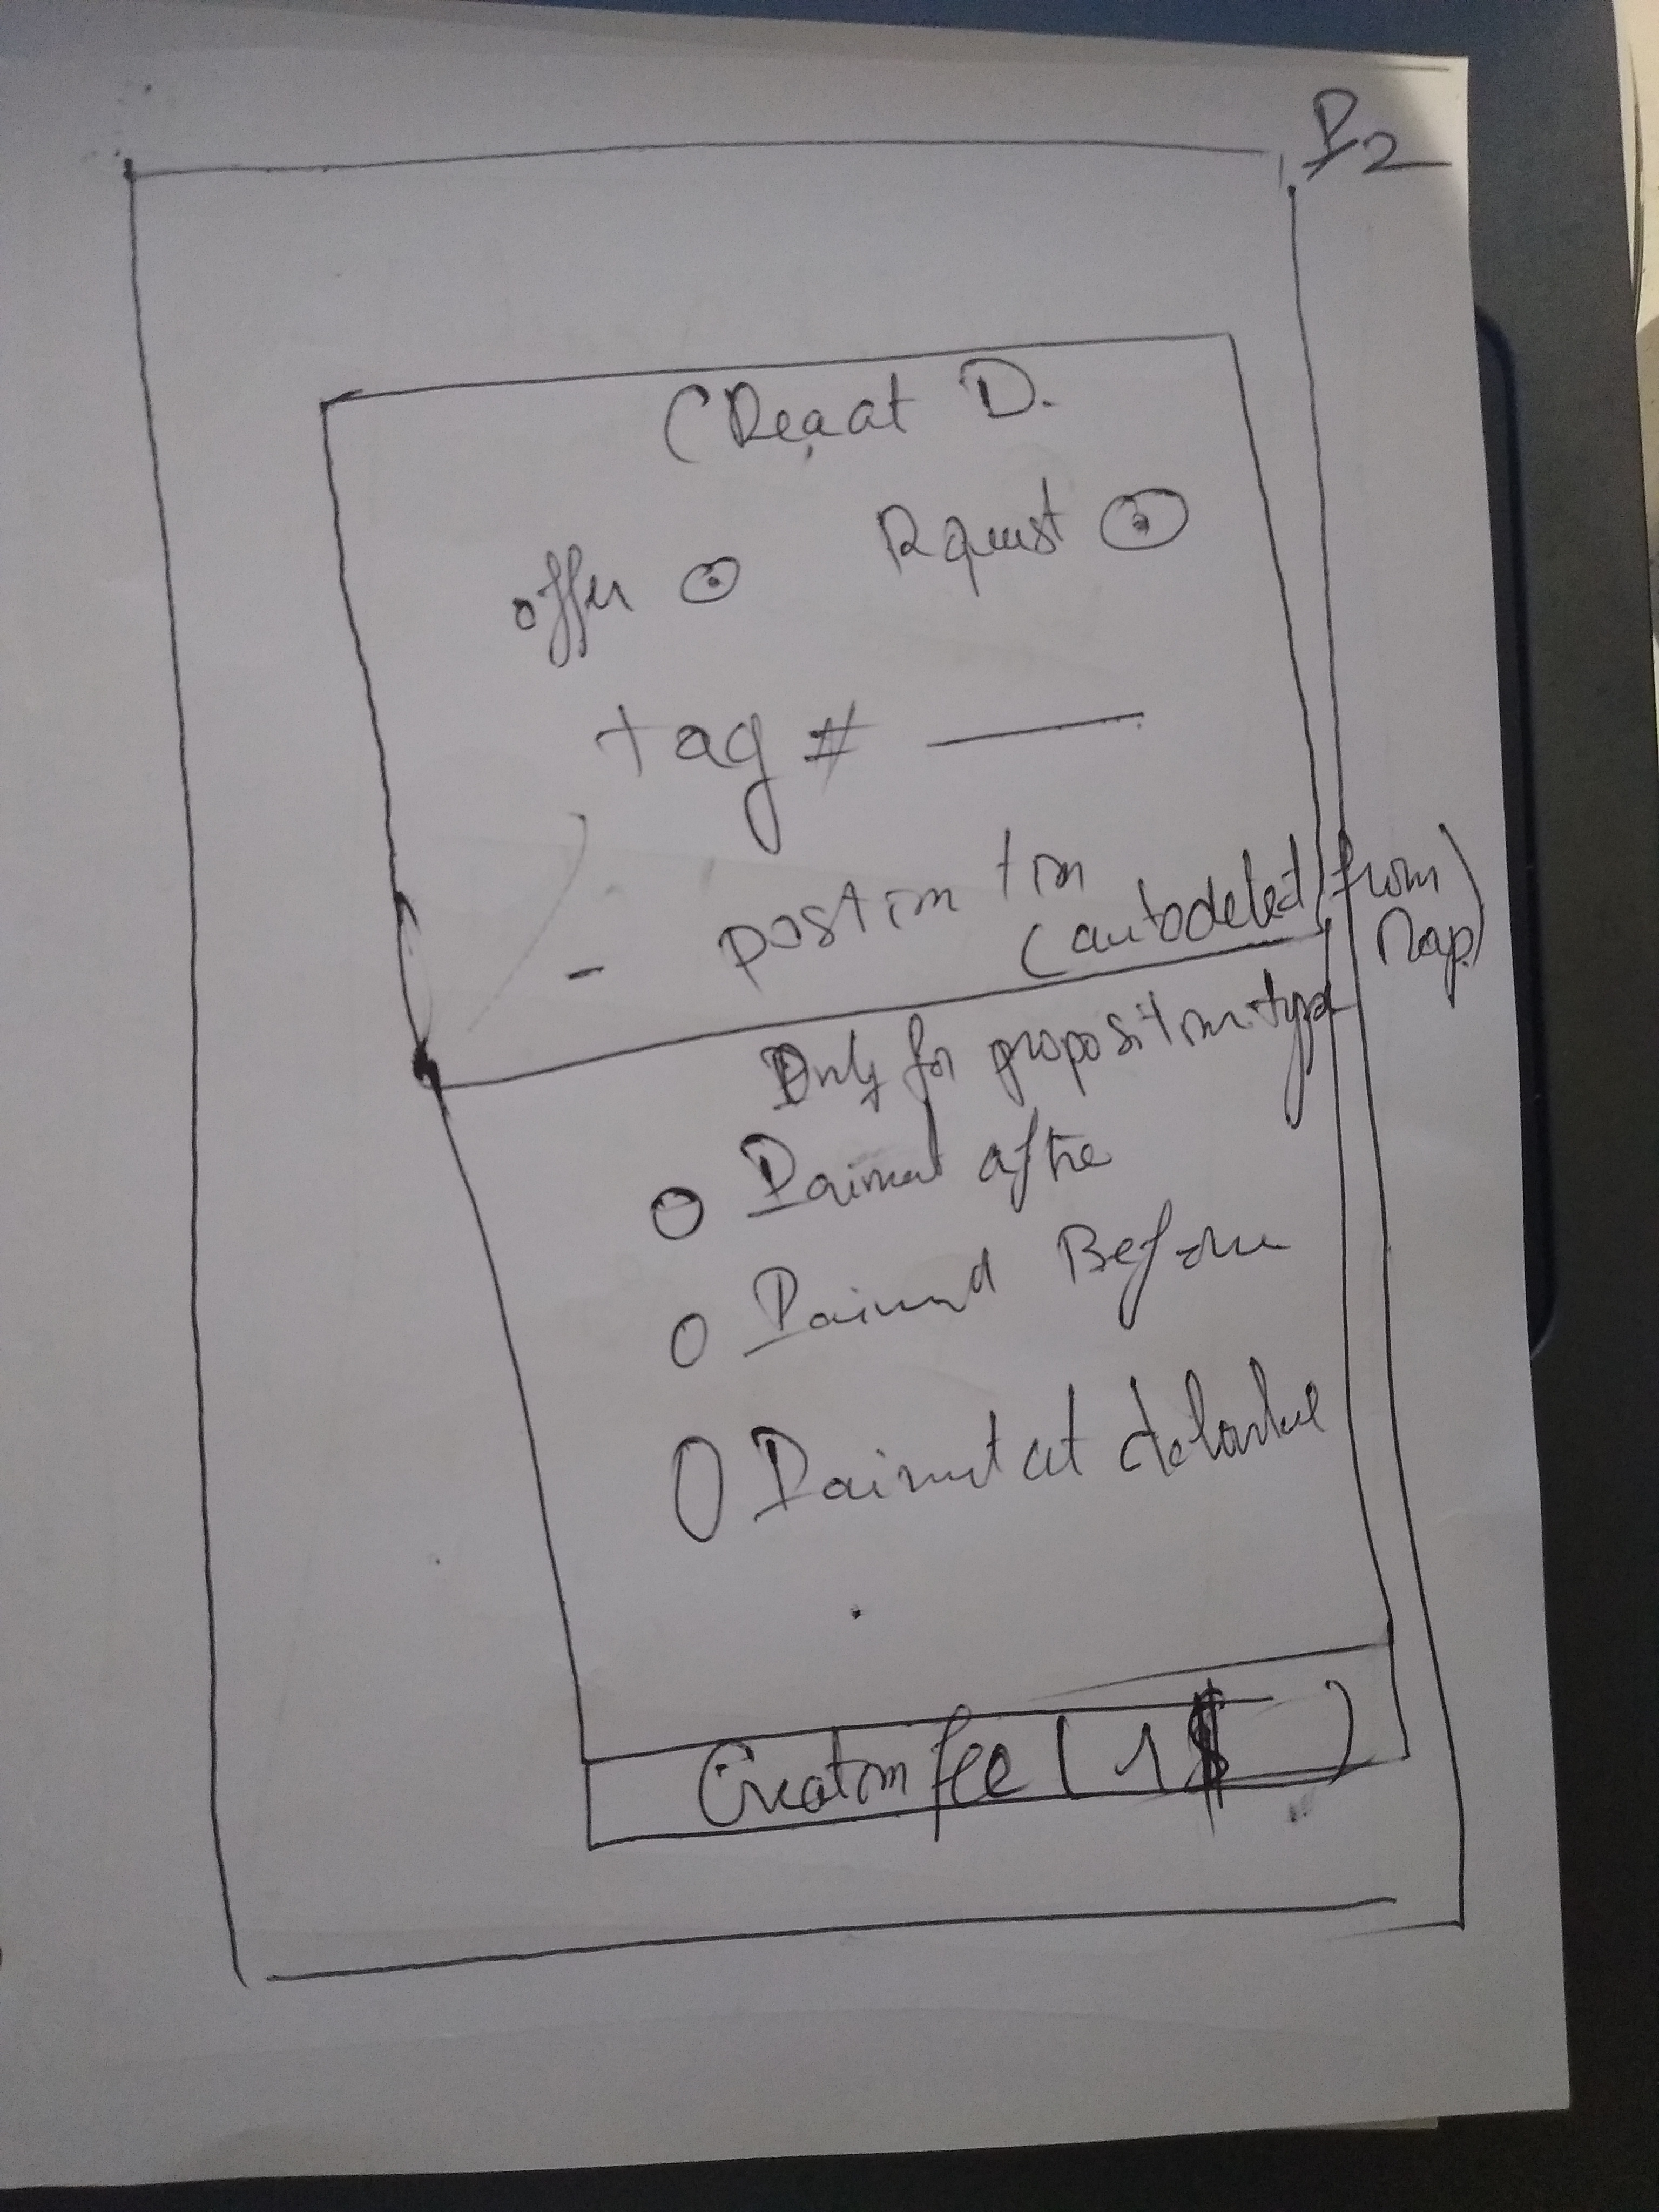 P2
CReaat D.
offer Rquest
tag #
- postim tim
(autodeted from
Map)
Only for propositm type
Paiment after
Paiment Before
Paiment at
Creatom fee (1$)